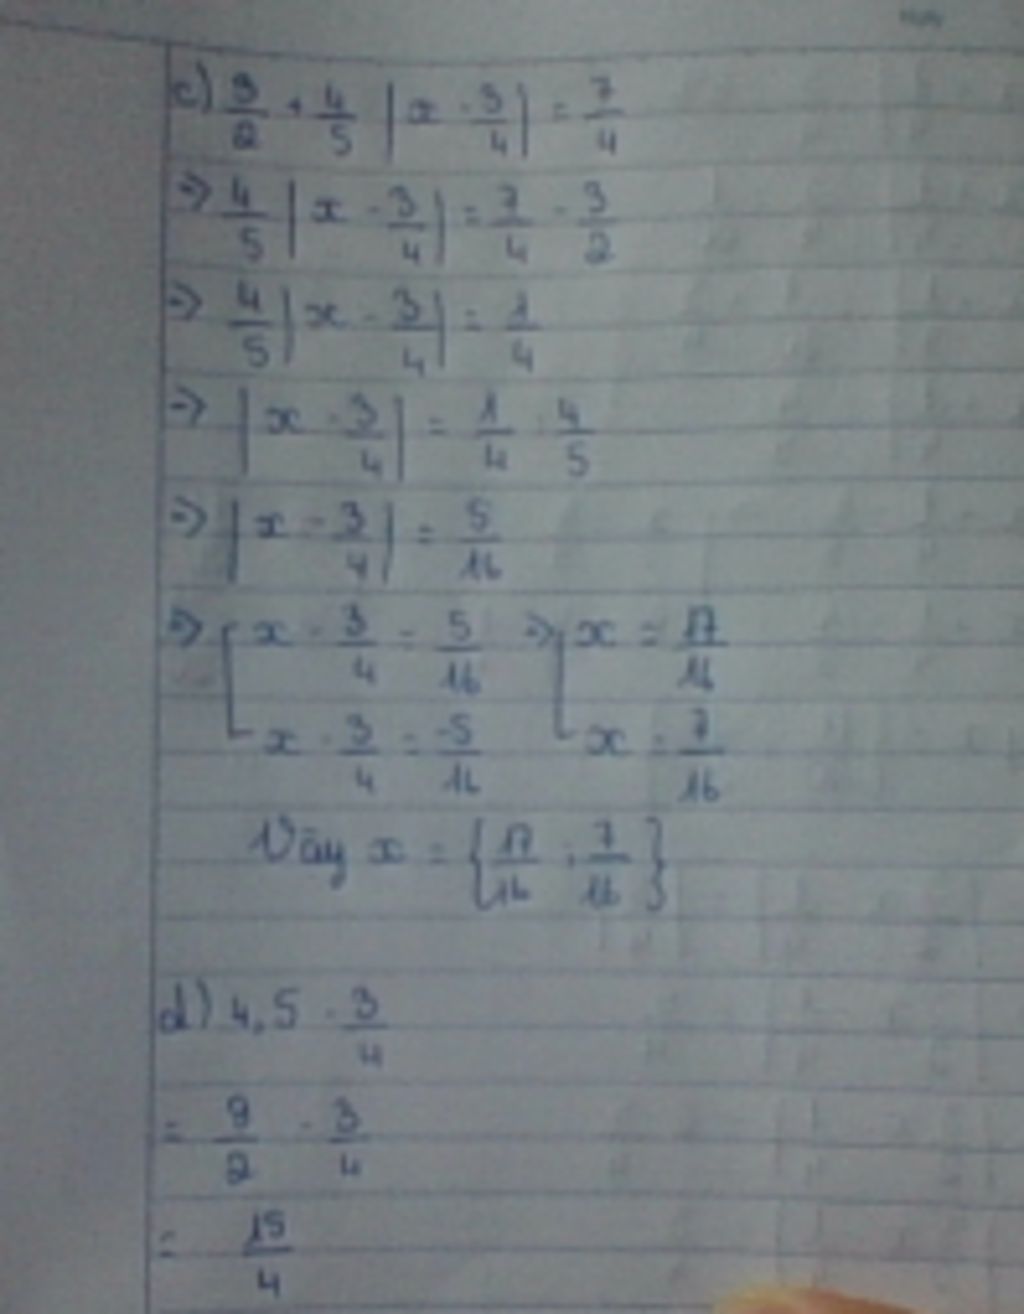 c) 3/2 + 4/5 |x - 3/4| = 7/4
=> 4/5 |x - 3/4| = 7/4 - 3/2
=> 4/5 |x - 3/4| = 1/4
=> |x - 3/4| = 1/4 : 4/5
=> |x - 3/4| = 5/16
=> [ x - 3/4 = 5/16 => [ x = 17/16
x - 3/4 = -5/16 x = 7/16
Vậy x = {17/16 ; 7/16}
d) 4,5 - 3/4
= 9/2 - 3/4
= 15/4